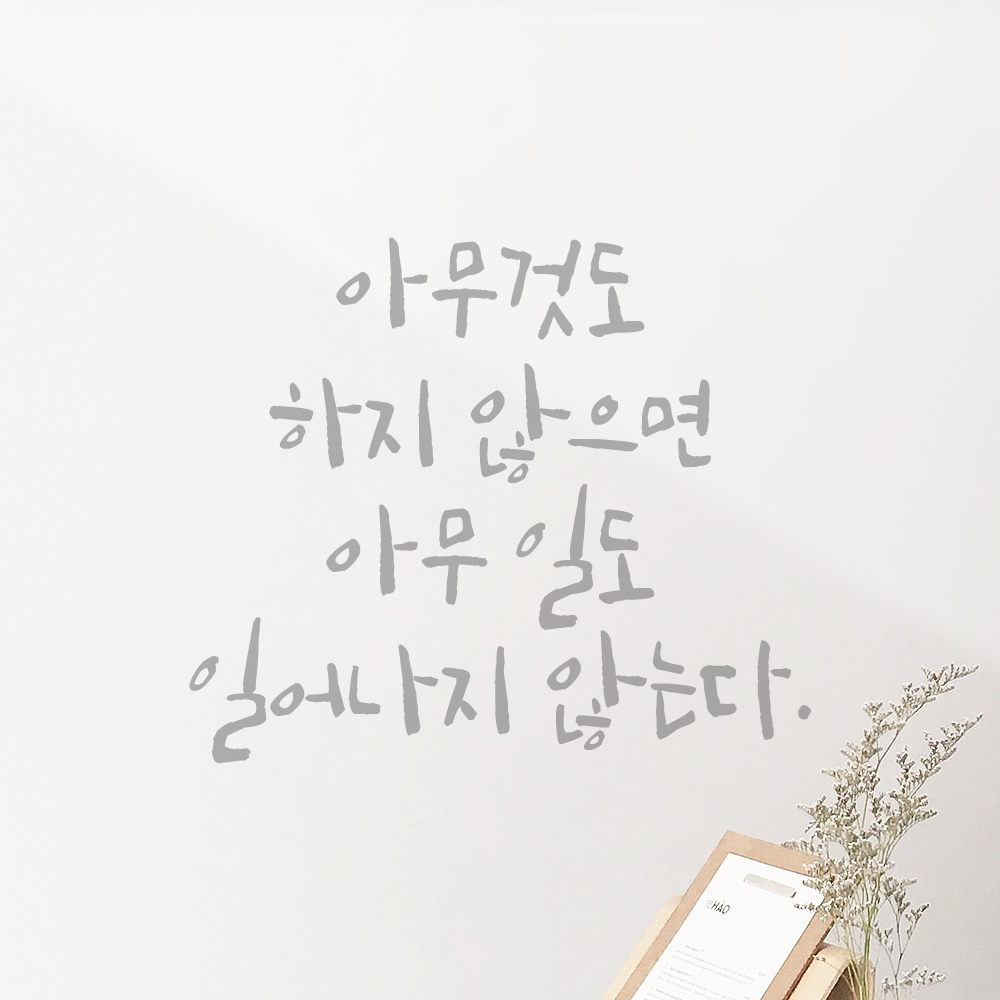 아무것도
하지 않으면
아무 일도
일어나지 않는다.
HAO